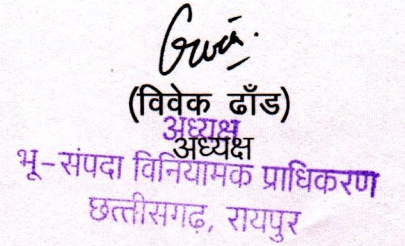 (विवेक ढाँड)
अध्यक्ष
अध्यक्ष
भू-संपदा विनियामक प्राधिकरण
छत्तीसगढ़, रायपुर